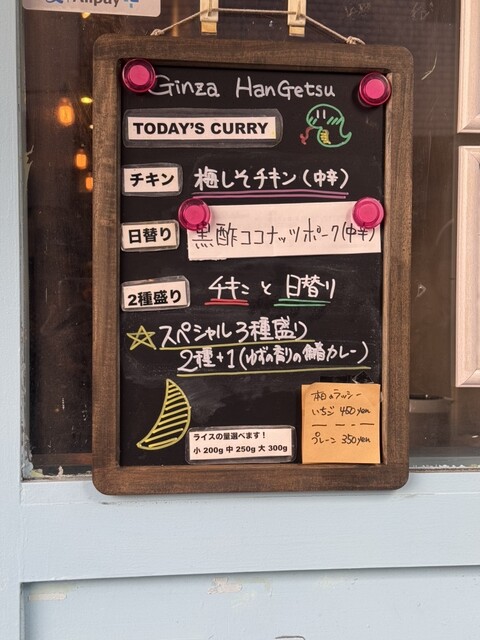 Alipay
Ginza HanGetsu
TODAY'S CURRY
チキン 梅しそチキン(中辛)
日替り 黒酢ココナッツポーク(中辛)
2種盛り チキンと日替り
☆スペシャル3種盛り
2種+1(ゆずの香りの鯖カレー)
ライスの量選べます!
小 200g 中 250g 大 300g
本日のラッシー
いちご 450yen
プレーン 350yen